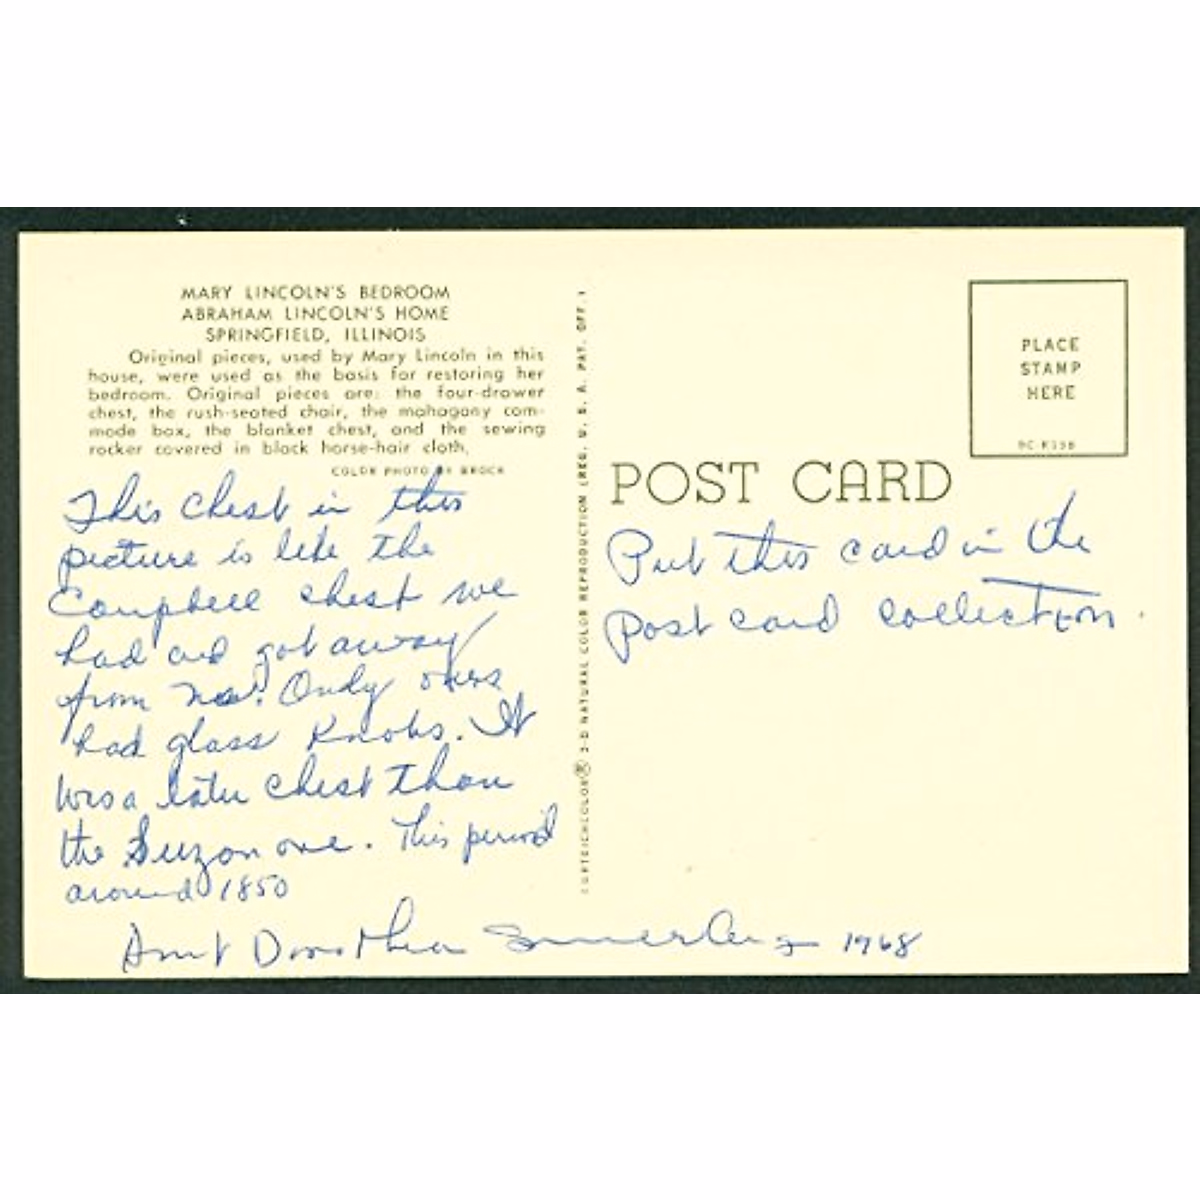 MARY LINCOLN'S BEDROOM
ABRAHAM LINCOLN'S HOME
SPRINGFIELD, ILLINOIS
Original pieces, used by Mary Lincoln in this
house, were used as the basis for restoring her
bedroom. Original pieces are: the four-drawer
chest, the rush-seated chair, the mahogany com-
mode box, the blanket chest, and the sewing
rocker covered in black horse-hair cloth.
COLOR PHOTO BY BROCK
This chest in this
picture is like the
Campbell chest we
had and got away
from us. Only ours
had glass knobs. It
was a later chest than
the Suzon one. This period
around 1850
Aunt Dorothea 1968
CURTEICHCOLOR® 3-D NATURAL COLOR REPRODUCTION (REG. U. S. A. PAT. OFF.)
PLACE
STAMP
HERE
POST CARD
Put this card in the
post card collection.